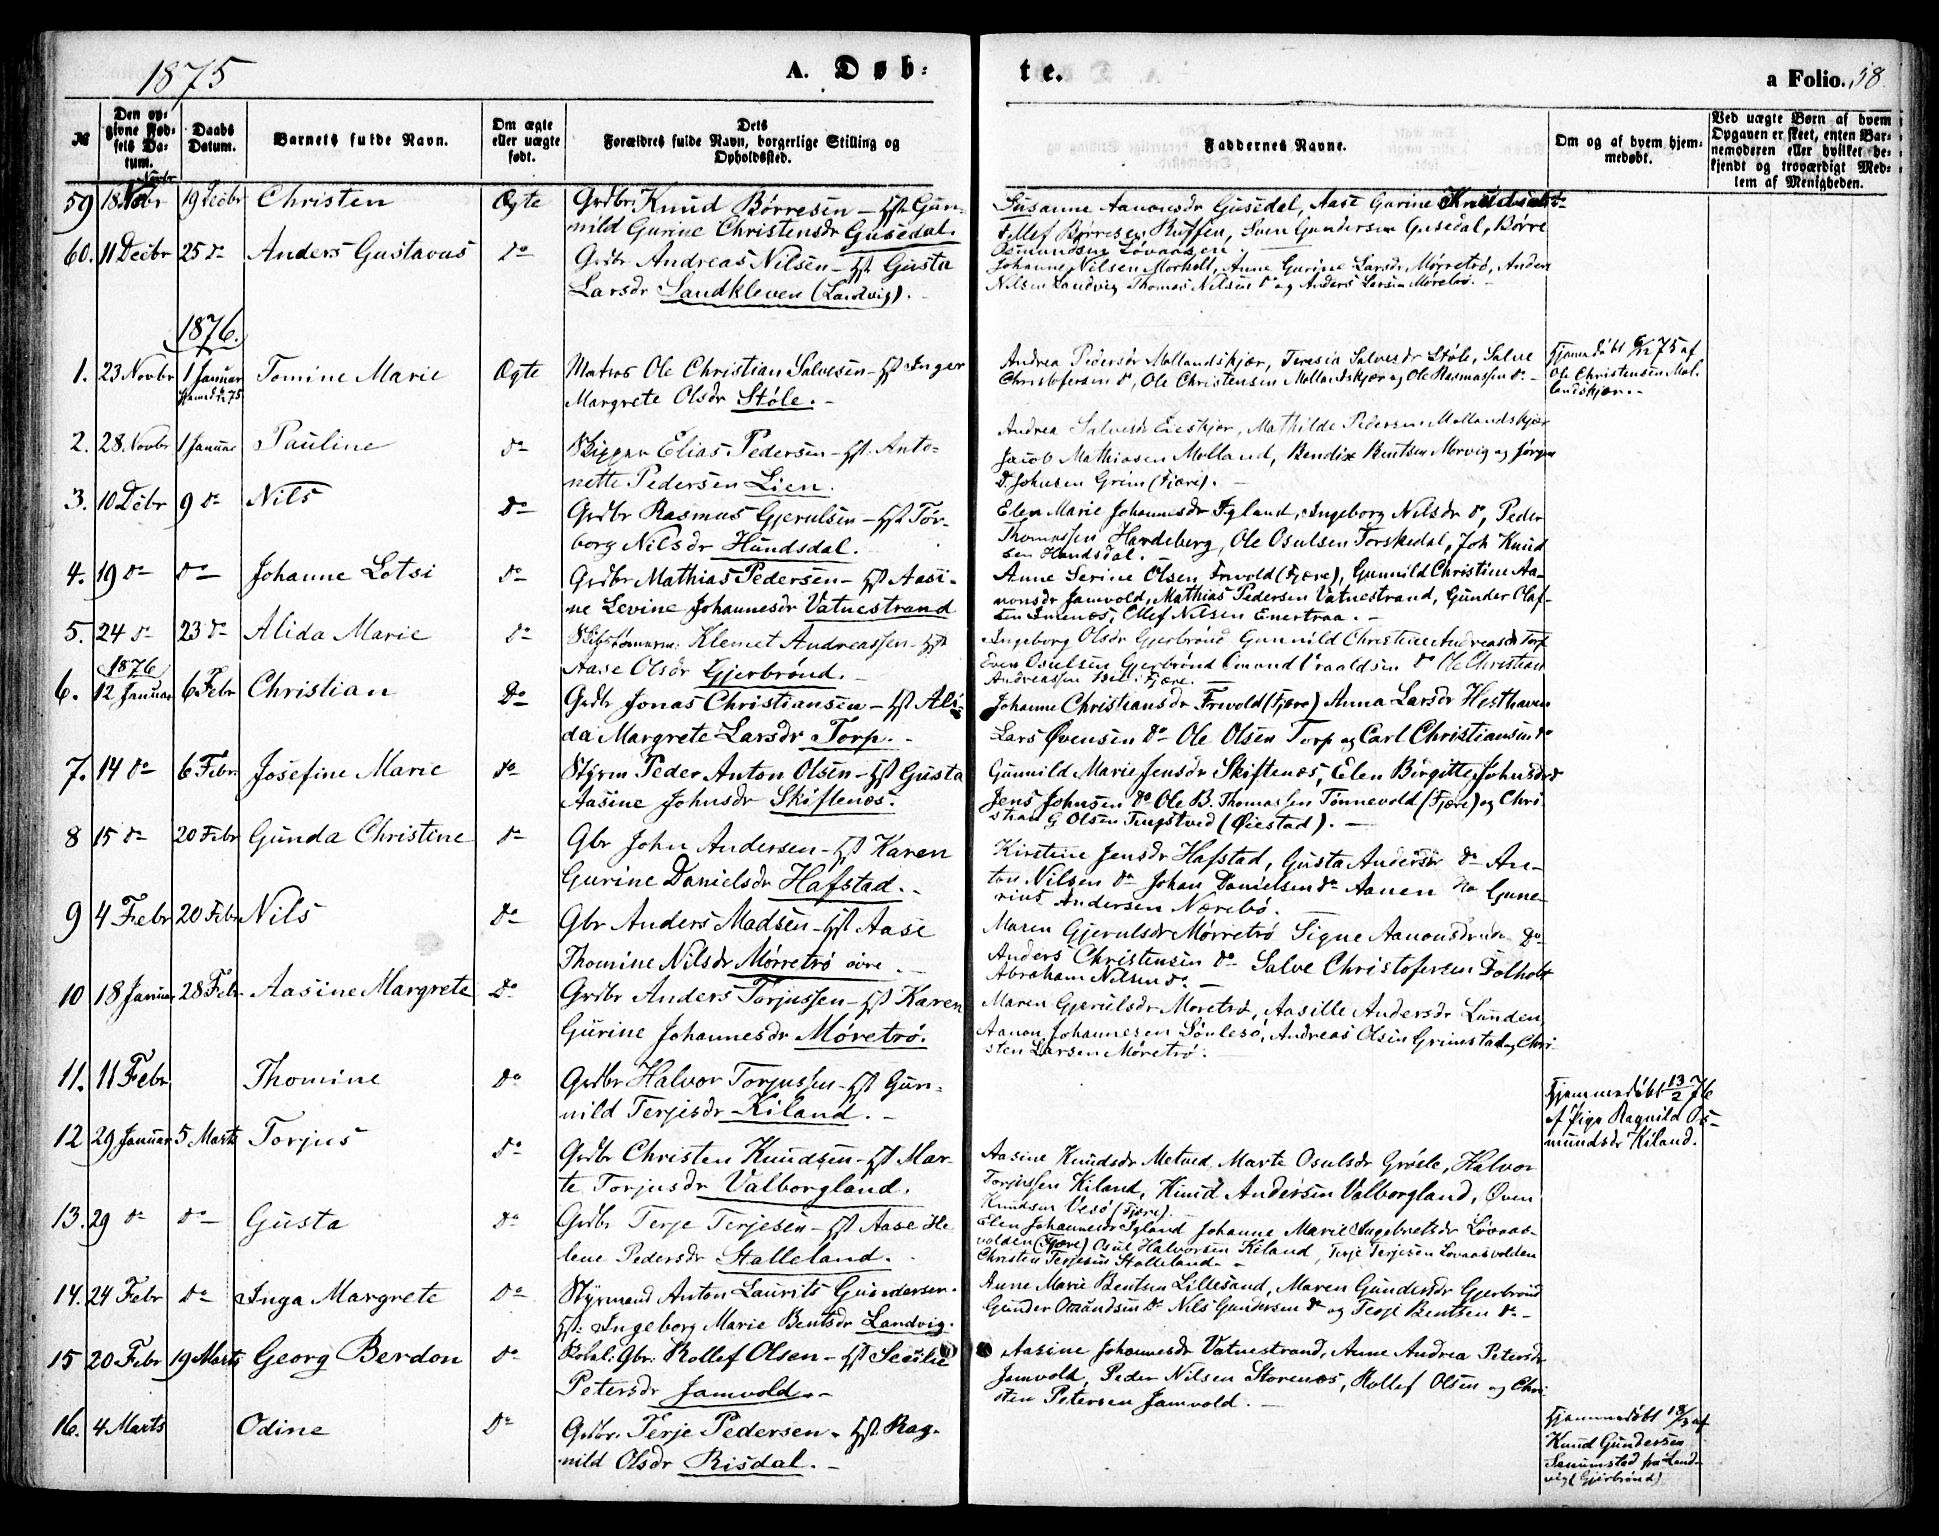 1875
A. Døb-
te.
a Folio. 58
№
Den opgivne Fødsels Datum.
Daabs Datum.
Barnets fulde Navn.
Om ægte eller uægte født.
Dets Forældres fulde Navn, borgerlige Stilling og Opholdssted.
Faddernes Navne.
Om og af hvem hjemmedøbt.
Ved uægte Børn af hvem Opgaven er skeet, enten Barnemoderen eller hvilket bekjendt og troværdigt Medlem af Menigheden.
59 18 Novbr 19 Decbr Christen Ægte Grdbr: Knud Børresen – Hst. Gun-
nild Gurine Christensdr Gusedal.
Susanne Aanonsdr Gusedal, Aase Gurine Knudsdr do
Ellef Børresen Buffen, Sven Gundersen Gusedal, Børre
Osmundsen Løvaasen
60. 11 Decbr 25 do Anders Gustavus do Grdbr Andreas Nilsen – Hst Gusta
Larsdr Landkleven (Landvig).
Johanne Nilsen Morholt, Anne Gurine Larsdr Mørretrø, Anders
Nilsen Landvig Thomas Nilsen do og Anders Larsen Møretrø.
1876.
1. 23 Novbr 1 Januar Tomine Marie Ægte Matros Ole Christian Salvesen – Hst Inger
Margrete Olsdr Støle.
Andrea Pedersdr Mollandskjær, Teresia Salvesdr Støle, Salve
Christofersen do, Ole Christensen Mollandskjær og Ole Rasmussen do.
Hjemmedøbt 6/12 75 af
Ole Christensen Mol-
landskjær.
2. 28 Novbr 1 Januar Pauline do Skipper Elias Pedersen – Hst. Anto-
nette Pedersen Lien.
Andrea Salvesdr Eieskjær, Mathilde Pedersen Mollandskjær
Jacob Mathiasen Molland, Bendix Bentsen Morvig og Jørgen
D. Johnsen Grim (Fjære).
3. 10 Decbr 9 do Nils do Grdbr Rasmus Gjerulsen – Hst Tor-
borg Nilsdr Hundsdal.
Elen Marie Johannesdr Igland, Ingeborg Nilsdr do, Peder
Thomassen Hardeberg, Ole Osulsen Torskedal, Joh Knud
sen Hundsdal.
4. 19 do do Johanne Lotsi do Grdbr Mathias Pedersen – Hst Aasi-
ne Levine Johannesdr Vatnestrand
Anne Serine Olsen Frivold (Fjære), Gunnild Christine Aa-
nonsdr Jamvold, Mathias Pedersen Vatnestrand, Gunder Olaf-
sen Imenes, Ellef Nilsen Enertraa.
5. 24 do 23 do Alida Marie do Skibstømmerm: Klemet Andreassen – Hst
Aase Olsdr Gjerbrønd.
Ingeborg Olsdr Gjerbrønd Gunnild Christine Andreasdr Torp
Even Osulsen Gjerbrønd Omund Vraaldsen do Ole Christian
Andreassen Bie i Fjære.
1876
6. 12 Januar 6 Febr Christian do Grdbr Jonas Christiansen – Hst Ali-
da Margrete Larsdr Torp.
Johanne Christiansdr Frivold (Fjære) Anna Larsdr Hesthaven
Lars Øvensen do Ole Olsen Torp og Carl Christiansen do
7. 14 do 6 Febr. Josefine Marie do Styrm Peder Anton Olsen – Hst Gusta
Aasine Johnsdr Skiftenes.
Gunnild Marie Jensdr Skiftenes, Elen Birgitte Johnsdr do
Jens Johnsen do Ole B. Thomassen Tønnevold (Fjære) og Chri-
stian G Olsen Tingstved (Øiestad).
8 15 do 20 Febr Gunda Christine do Gbr John Andersen – Hst Karen
Gurine Danielsdr Hafstad.
Kirstine Jensdr Hafstad, Gusta Andersdr do An-
ton Nilsen do Johan Danielsen do Aanen do Gune-
rius Andersen Nærebø.
9 4 Febr 20 Febr Nils do Gbr Anders Madsen – Hst Aase
Thomine Nilsdr Mørretrø øvre.
Maren Gjerulsdr Mørretrø Signe Aanonsdr do
Anders Christensen do Salve Christofersen Folholt
Abraham Nilsen do.
10 18 Januar 28 Febr. Aasine Margrete do Grdbr Anders Torjussen – Hst Karen
Gurine Johannesdr Møretrø.
Maren Gjerulsdr Moretrø, Aasille Andersdr Lunden,
Aanon Johannesen Sønlesø, Andreas Olsen Grimstad og Chri-
sten Larsen Møretrø.
11. 11 Febr Thomine do Grdbr Halvor Torjussen – Hst Gun-
nild Terjesdr Kiland.
Hjemmedøbt 13/2 76
af Pige Ragnild Os-
mundsdr Kiland.
12 29 Januar 5 Marts Torjus do Grdbr Christen Knudsen – Hst Mar-
te Torjusdr Valborgland.
Aasine Knudsdr Metved, Marte Osulsdr Grøsle, Halvor
Torjussen Kiland, Knud Andersen Valborgland, Oven
Knudsen Vesø (Fjære).
13. 29 do do Gusta do Grdbr Terje Terjesen – Hst Aase He
lene Pedersdr Stalleland.
Elen Johannesdr Igland Johanne Marie Ingebretsdr Løvaas-
volden (Fjære) Osul Halvorsen Kiland, Terje Terjesen Løvaasvolden
Christen Terjesen Stalleland.
14. 24 Febr do Inga Margrete do Styrmand Anton Laurits Gundersen.
Hst: Ingeborg Marie Bentsdr Landvig.
Anne Marie Bentsen Lillesand, Maren Gundersdr Gjerbrønd
Gunder Omundsen do Nils Gundersen do og Terje Bentsen do
15 20 Febr 19 Marts Georg Berdon do Gbr: Rollef Olsen – Hst Secilie
Petersdr Jamvold.
Aasine Johannesdr Vatnestrand, Anne Andrea Petersdr
Jamvold, Peder Nilsen Storenes, Rollef Olsen og Chri-
sten Petersen Jamvold.
16. 4 Marts Odine do Grdbr. Terje Pedersen. Hst. Rag-
nild Olsdr Risdal.
Hjemmedøbt 18/3 af
Knud Gundersen
fra Land-
vig (Gjerbrønd)